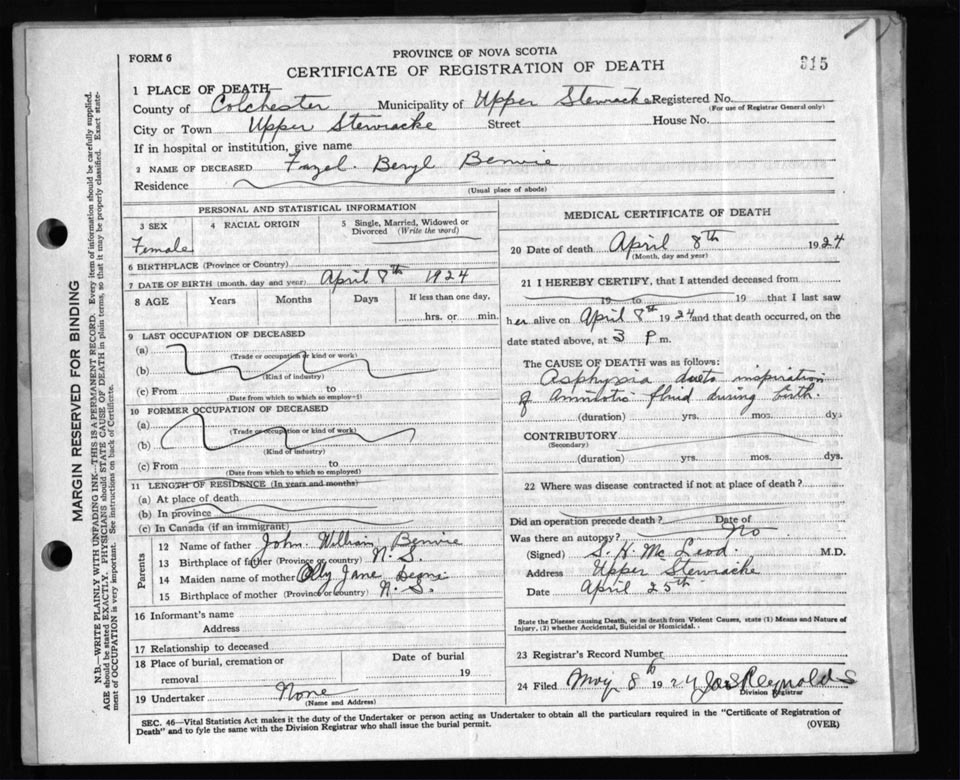 FORM 6
PROVINCE OF NOVA SCOTIA
CERTIFICATE OF REGISTRATION OF DEATH
315
1 PLACE OF DEATH
County of Colchester Municipality of Upper Stewiacke Registered No.
(For use of Registrar General only)
City or Town Upper Stewiacke Street House No.
If in hospital or institution, give name
2 NAME OF DECEASED Beryl Benvie
Residence
(Usual place of abode)
PERSONAL AND STATISTICAL INFORMATION
3 SEX 4 RACIAL ORIGIN 5 Single, Married, Widowed or Divorced (Write the word)
Female
6 BIRTHPLACE (Province or Country)
7 DATE OF BIRTH (month, day and year) April 8th 1924
8 AGE Years Months Days If less than one day,
hrs. or min.
9 LAST OCCUPATION OF DECEASED
(a)
(Trade or occupation or kind of work)
(b)
(Kind of industry)
(c) From to
(Date from which to which so employed)
10 FORMER OCCUPATION OF DECEASED
(a)
(Trade or occupation or kind of work)
(b)
(Kind of industry)
(c) From to
(Date from which to which so employed)
11 LENGTH OF RESIDENCE (In years and months)
(a) At place of death
(b) In province
(c) In Canada (if an immigrant)
Parents
12 Name of father John William Benvie
13 Birthplace of father (Province or country) N.S.
14 Maiden name of mother Jane
15 Birthplace of mother (Province or country) N.S.
16 Informant's name
Address
17 Relationship to deceased
18 Place of burial, cremation or removal Date of burial
19
19 Undertaker None
(Name and Address)
MEDICAL CERTIFICATE OF DEATH
20 Date of death April 8th 1924
(Month, day and year)
21 I HEREBY CERTIFY, that I attended deceased from
19 to 19 that I last saw
her alive on April 8th 1924 and that death occurred, on
date stated above, at 3 P m.
The CAUSE OF DEATH was as follows:
Asphyxia due to inspiration
of fluid during birth.
(duration) yrs. mos. dys
CONTRIBUTORY
(Secondary)
(duration) yrs. mos. dys.
22 Where was disease contracted if not at place of death?
Did an operation precede death? Date of
Was there an autopsy? No
(Signed) S. H. McLeod. M.D.
Address Upper Stewiacke
Date April 25th
State the Disease causing Death, or in death from Violent Causes, state (1) Means and Nature of
Injury, (2) whether Accidental, Suicidal or Homicidal.
23 Registrar's Record Number
24 Filed May 8th 1924 Jas Reynolds
Division Registrar
SEC. 46—Vital Statistics Act makes it the duty of the Undertaker or person acting as Undertaker to obtain all the particulars required in the "Certificate of Registration of
Death" and to fyle the same with the Division Registrar who shall issue the burial permit.
(OVER)
MARGIN RESERVED FOR BINDING
N.B.—WRITE PLAINLY WITH UNFADING INK—THIS IS A PERMANENT RECORD. Every item of information should be carefully supplied.
AGE should be stated EXACTLY. PHYSICIANS should STATE CAUSE OF DEATH in plain terms, so that it may be properly classified. Exact state-
ment of OCCUPATION is very important. See instructions on back of Certificate.